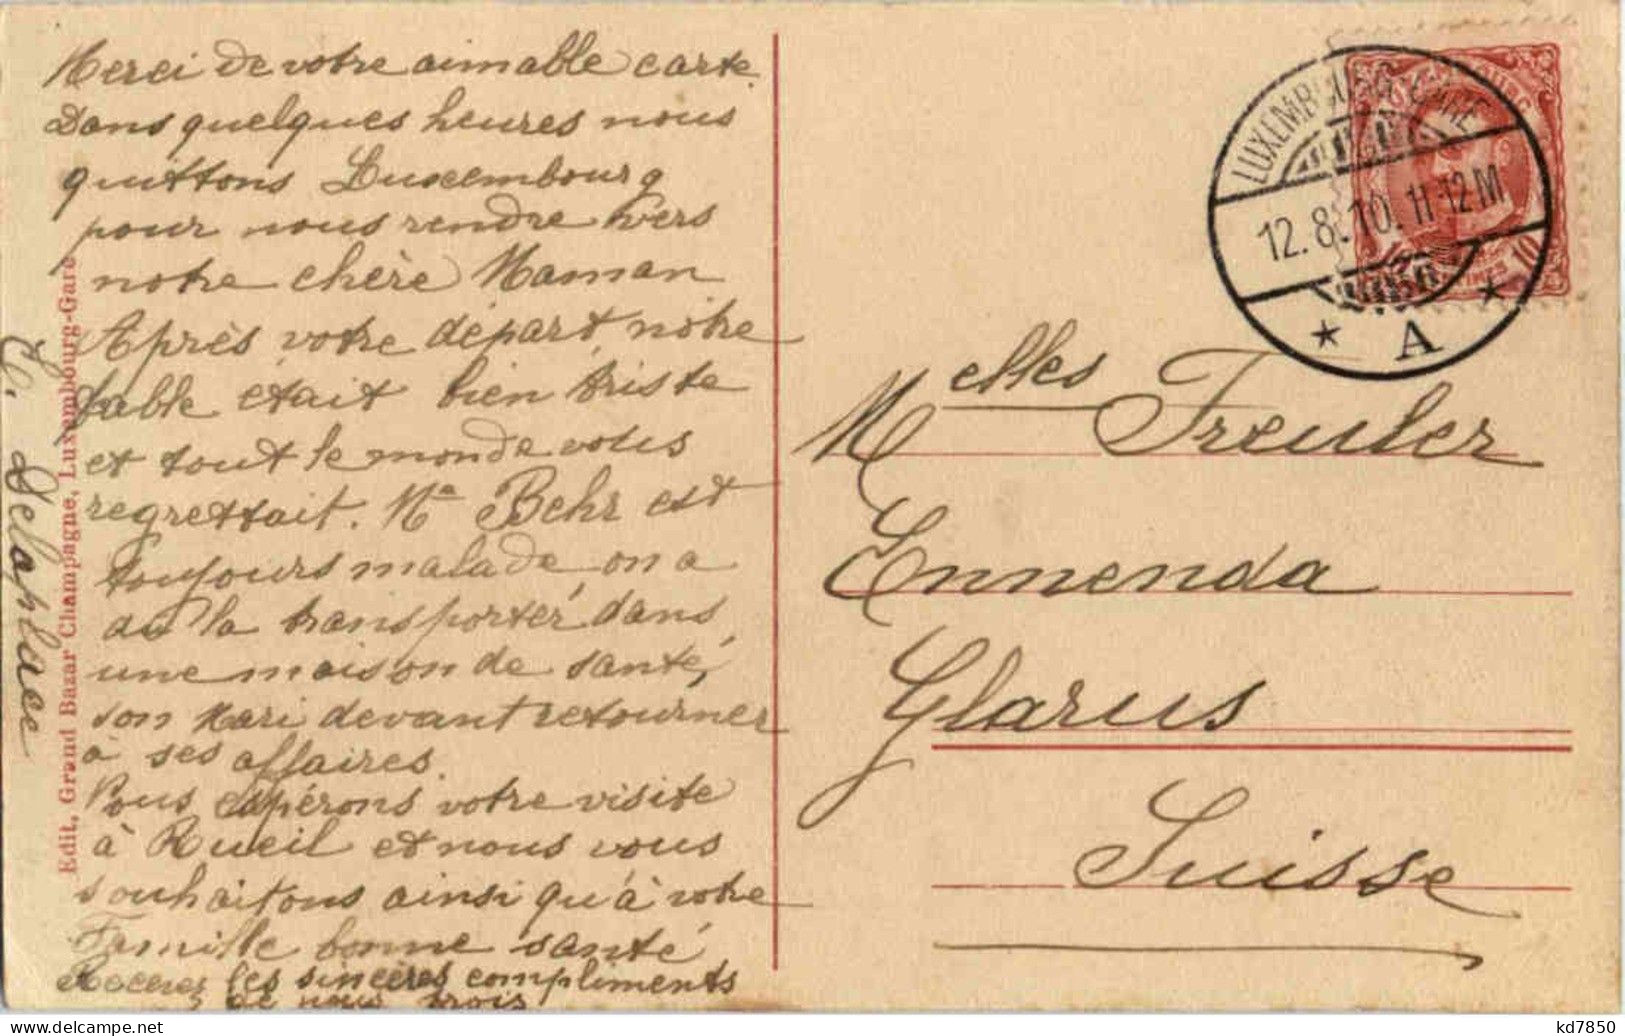 Merci de votre aimable carte.
Dans quelques heures nous
quittons Luxembourg
pour nous rendre vers
notre chère Maman
Après votre départ, nôtre
table était bien triste
et tout le monde vous
regrettait. Me Behr est
toujours malade, on a
du la transporter, dans
une maison de santé,
son Mari devant retourner
à ses affaires.
Nous espérons votre visite
à Rueil et nous vous
souhaitons ainsi qu'à votre
Famille bonne santé
Recevez les sincères compliments
de nous trois
Delaplace
Edit, Grand Bazar Champagne, Luxembourg-Gare
LUXEMBOURG-GARE
12.8.10. 11-12M
A
10
Melles Freuler
Ennenda
Glarus
Suisse
kd7850